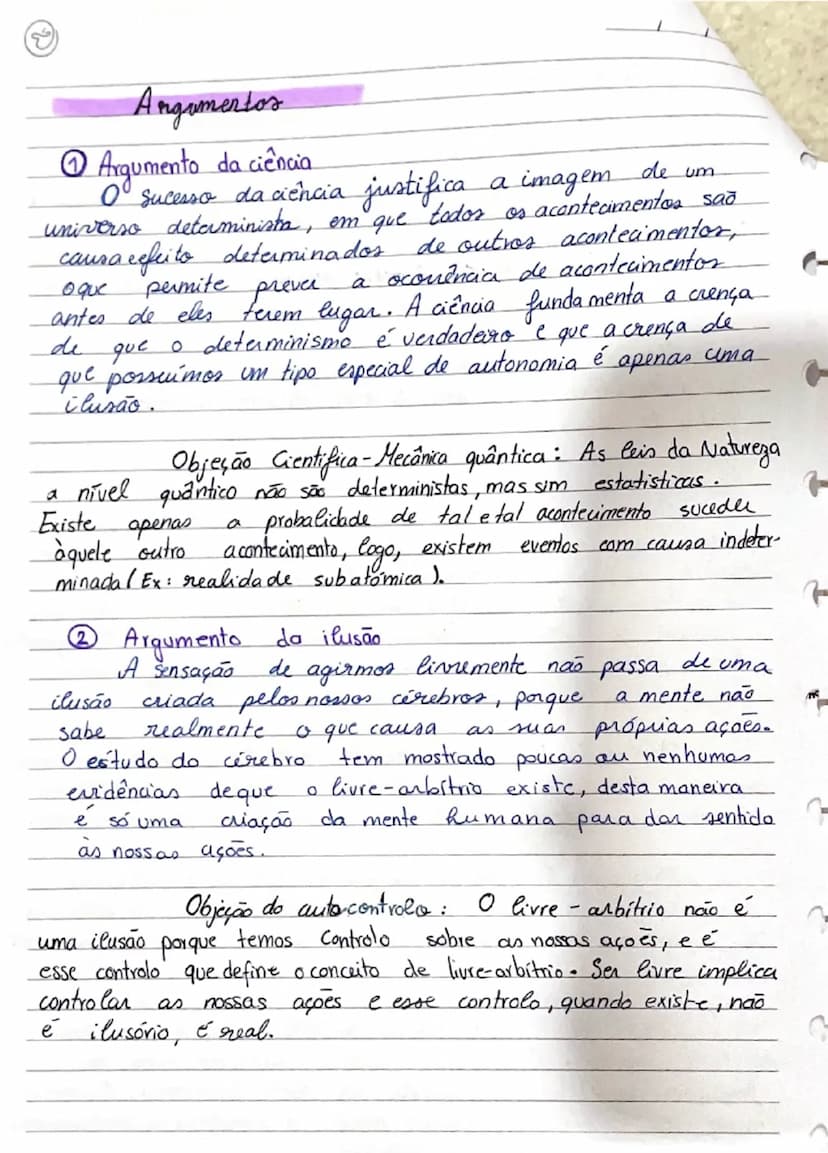 Argumentos
① Argumento da ciência
O sucesso da ciência justifica a imagem de um
universo determinista, em que todos os acontecimentos são
causa e efeito determinados de outros acontecimentos,
o que permite prever a ocorrência de acontecimentos
antes de eles terem lugar. A ciência fundamenta a crença
de que o determinismo é verdadeiro e que a crença de
que possuímos um tipo especial de autonomia é apenas uma
ilusão.
Objeção Científica - Mecânica quântica: As leis da Natureza
a nível quântico não são deterministas, mas sim estatísticas.
Existe apenas a probalidade de tal e tal acontecimento suceder
àquele outro acontecimento, logo, existem eventos com causa indeter-
minada (Ex: realidade subatómica).
② Argumento da ilusão
A sensação de agirmos livremente não passa de uma
ilusão criada pelos nossos cérebros, porque a mente não
sabe realmente o que causa as suas próprias ações.
O estudo do cérebro tem mostrado poucas ou nenhumas
evidências de que o livre-arbítrio existe, desta maneira
é só uma criação da mente humana para dar sentido
às nossas ações.
Objeção do autocontrolo: O livre-arbítrio não é
uma ilusão porque temos controlo sobre as nossas ações, e é
esse controlo que define o conceito de livre-arbítrio. Ser livre implica
controlar as nossas ações e esse controlo, quando existe, não
é ilusório, é real.